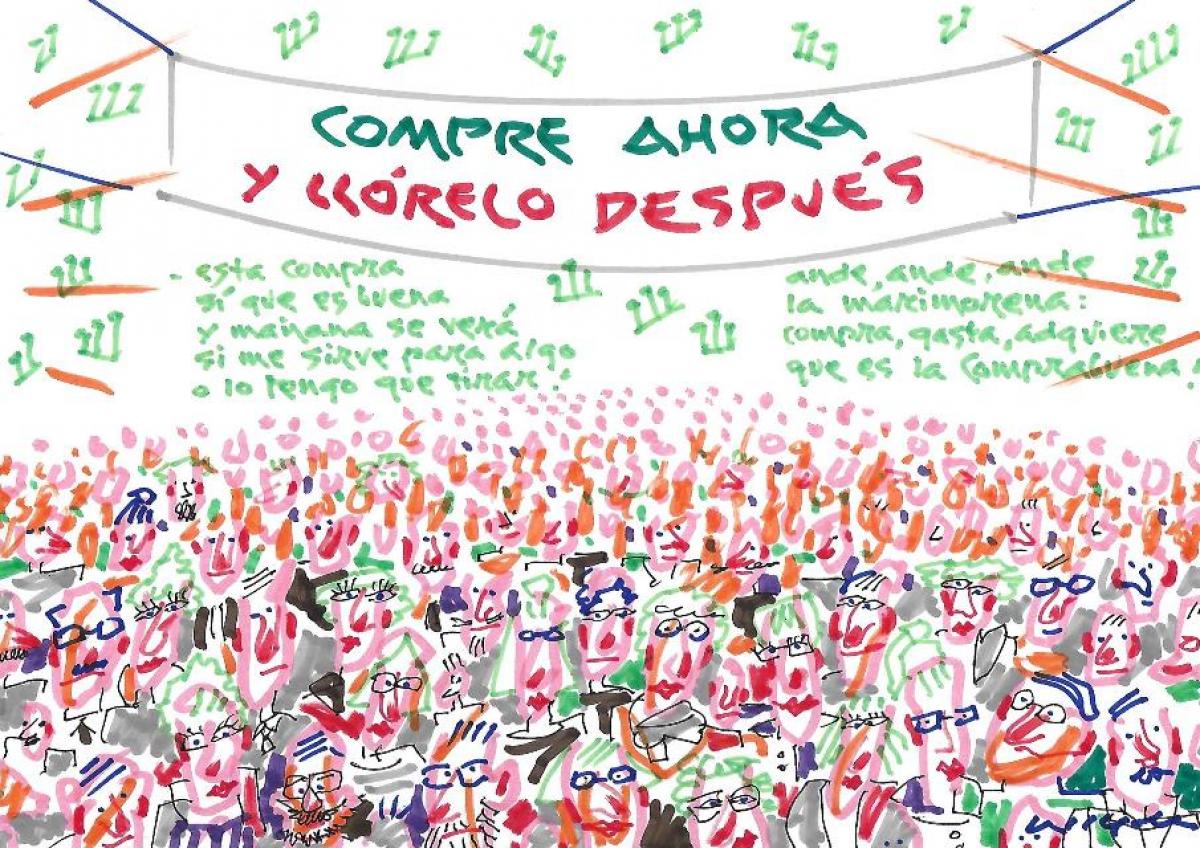 COMPRE AHORA
Y LLÓRELO DESPUÉS
- esta compra
sí que es buena
y mañana se verá
si me sirve para algo
o lo tengo que tirar!
ande, ande, ande
la marimorena:
compra, gasta, adquiere
que es la Comprabuena!